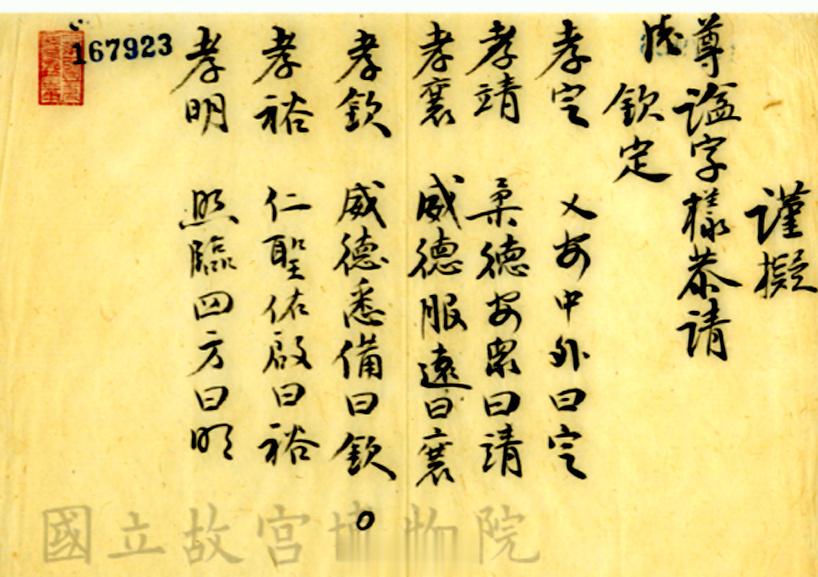 謹擬
尊謚字樣恭請
欽定
孝定 乂安中外曰定
孝靖 柔德安眾曰靖
孝襄 威德服遠曰襄
孝欽 威德悉備曰欽 ○
孝裕 仁聖佑啟曰裕
孝明 照臨四方曰明
167923
國立故宮博物院